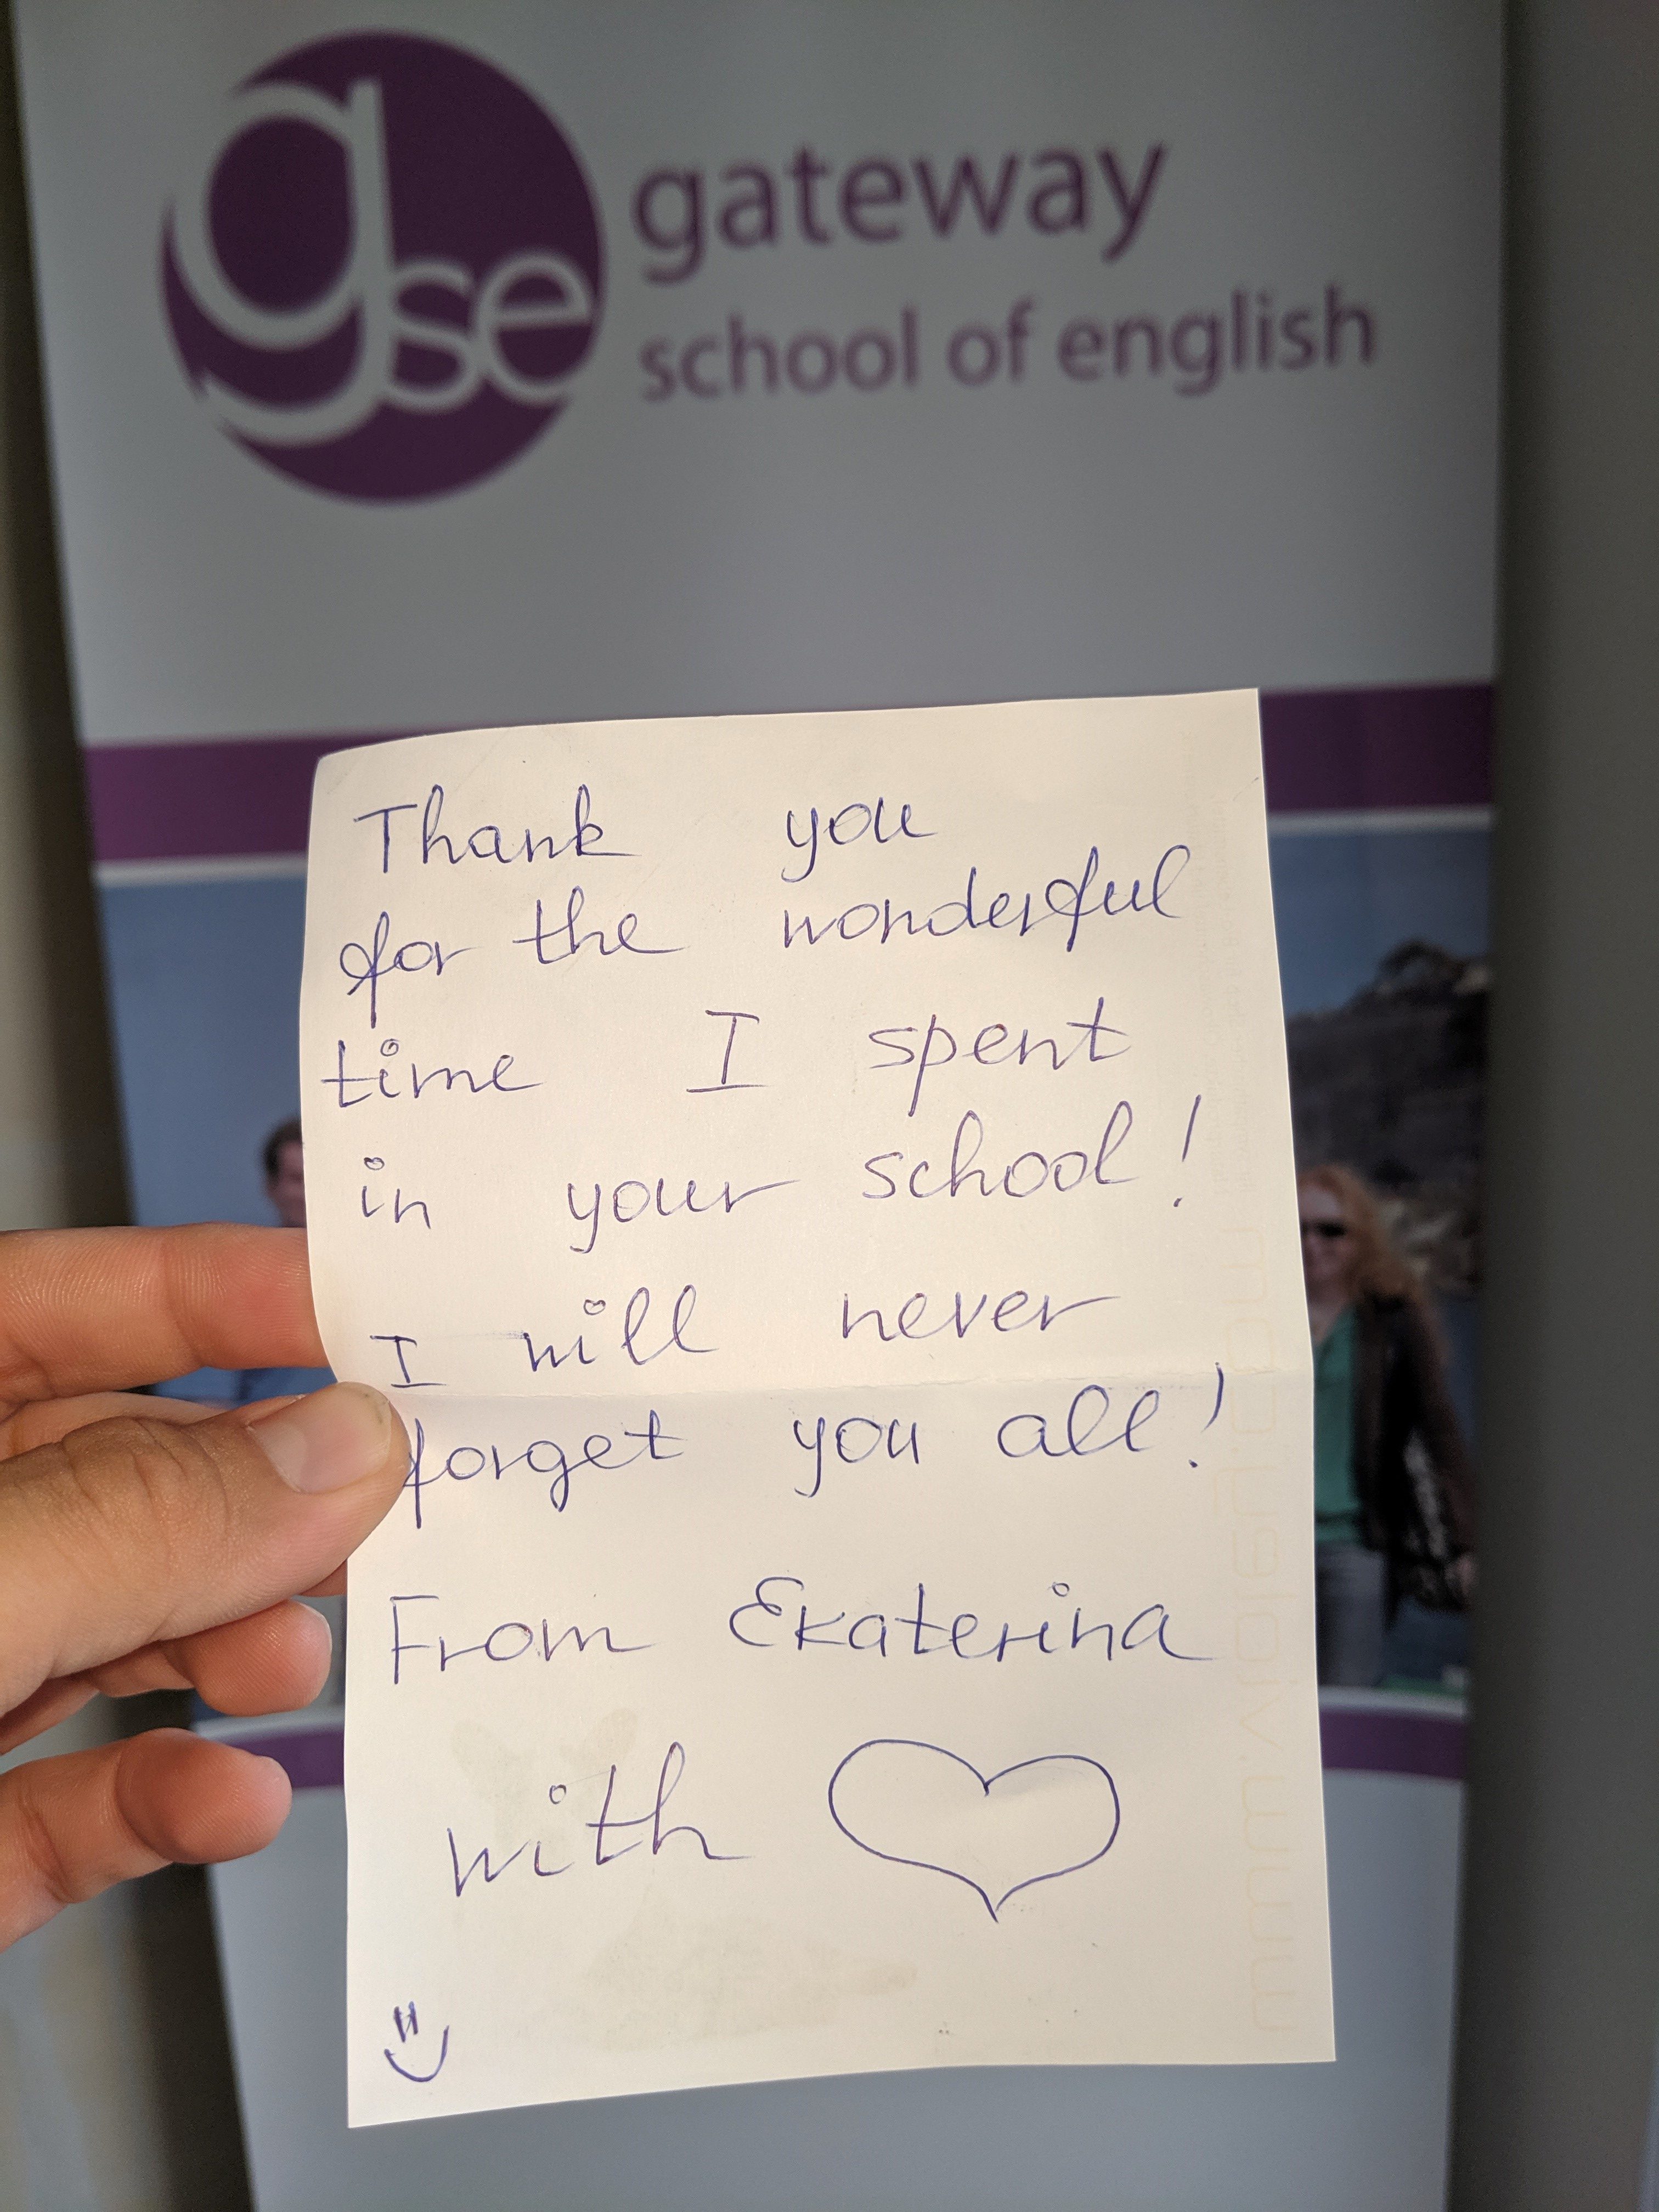 gse
gateway
school of english
Thank you
for the wonderful
time I spent
in your school!
I will never
forget you all!
From Ekaterina
with